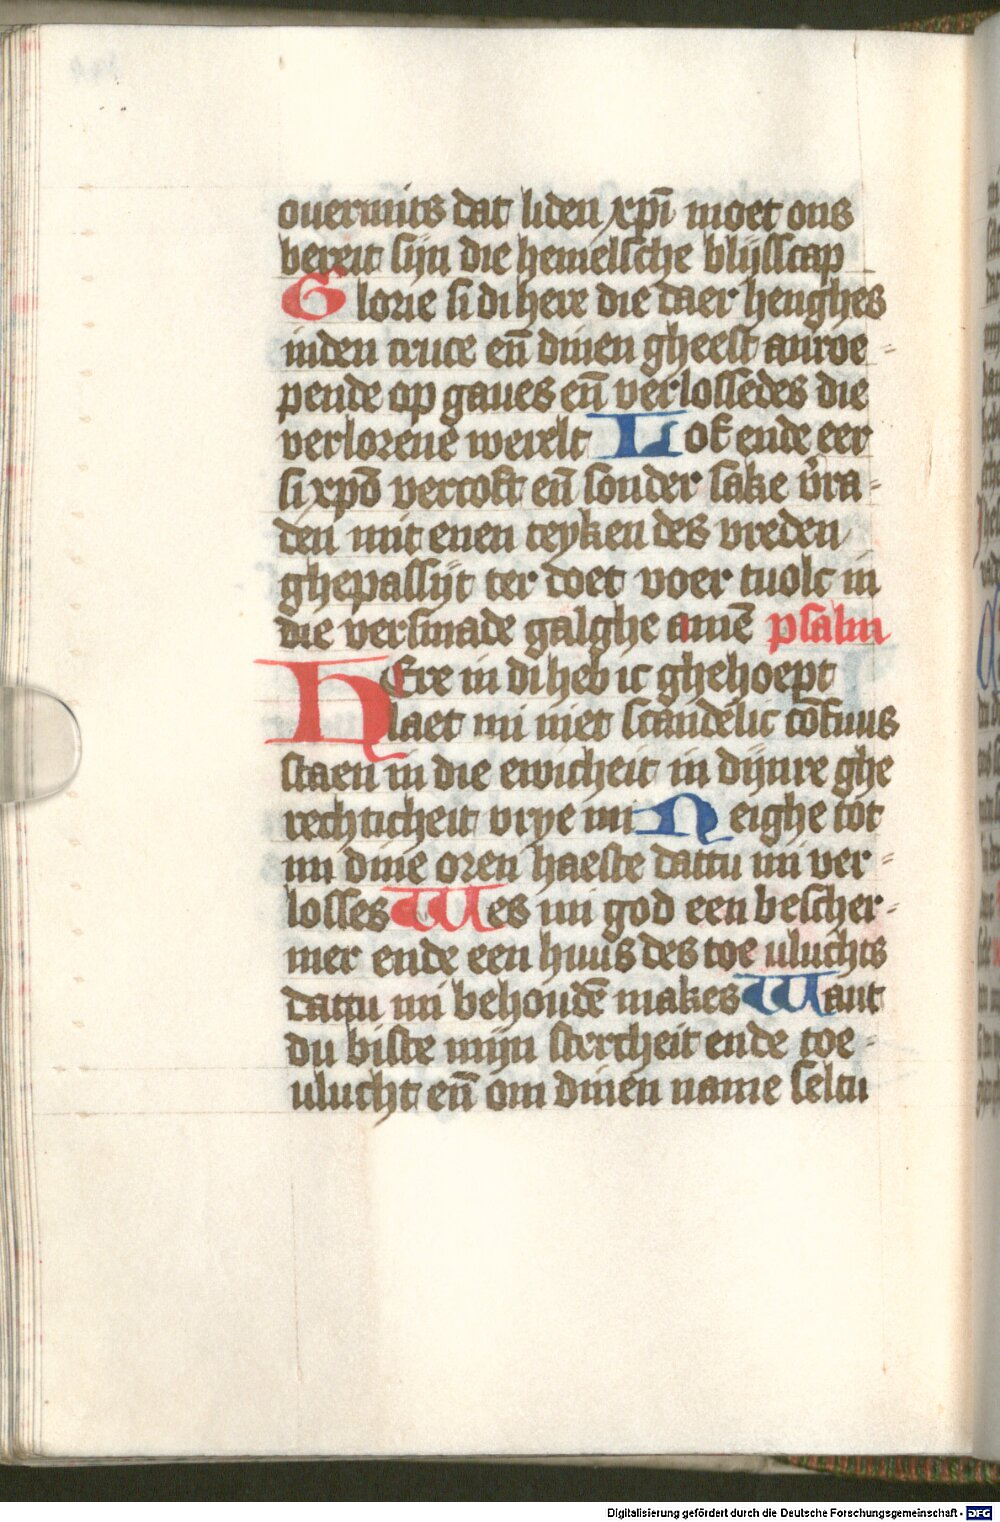 ouermits dat liden xp̄i moet ons
bereit sijn die hemelsche blijsscap
Glorie si di here die daer henghes
inden cruce en̄ dinen gheest anroe⸗
pende op gaues en̄ verlossedes die
verlorene werelt Lof ende eer
si xpō vercoft en̄ sonder sake v̄ra⸗
den mit enen teyken des vreden
ghepassijt ter doet voer tuolc in
die versmade galghe amē psalm
HEre in di heb ic ghehoept
laet mi niet scandelic cōfuus
staen in die ewicheit in dijnre ghe
rechticheit vrye mi Neighe tot
mi dine oren haeste dattu mi ver⸗
losses Wes mi god een bescher⸗
mer ende een huus des toe uluchts
dattu mi behoudē makes Want
du biste mijn stercheit ende toe⸗
ulucht en̄ om dinen name seltu
Digitalisierung gefördert durch die Deutsche Forschungsgemeinschaft - DFG